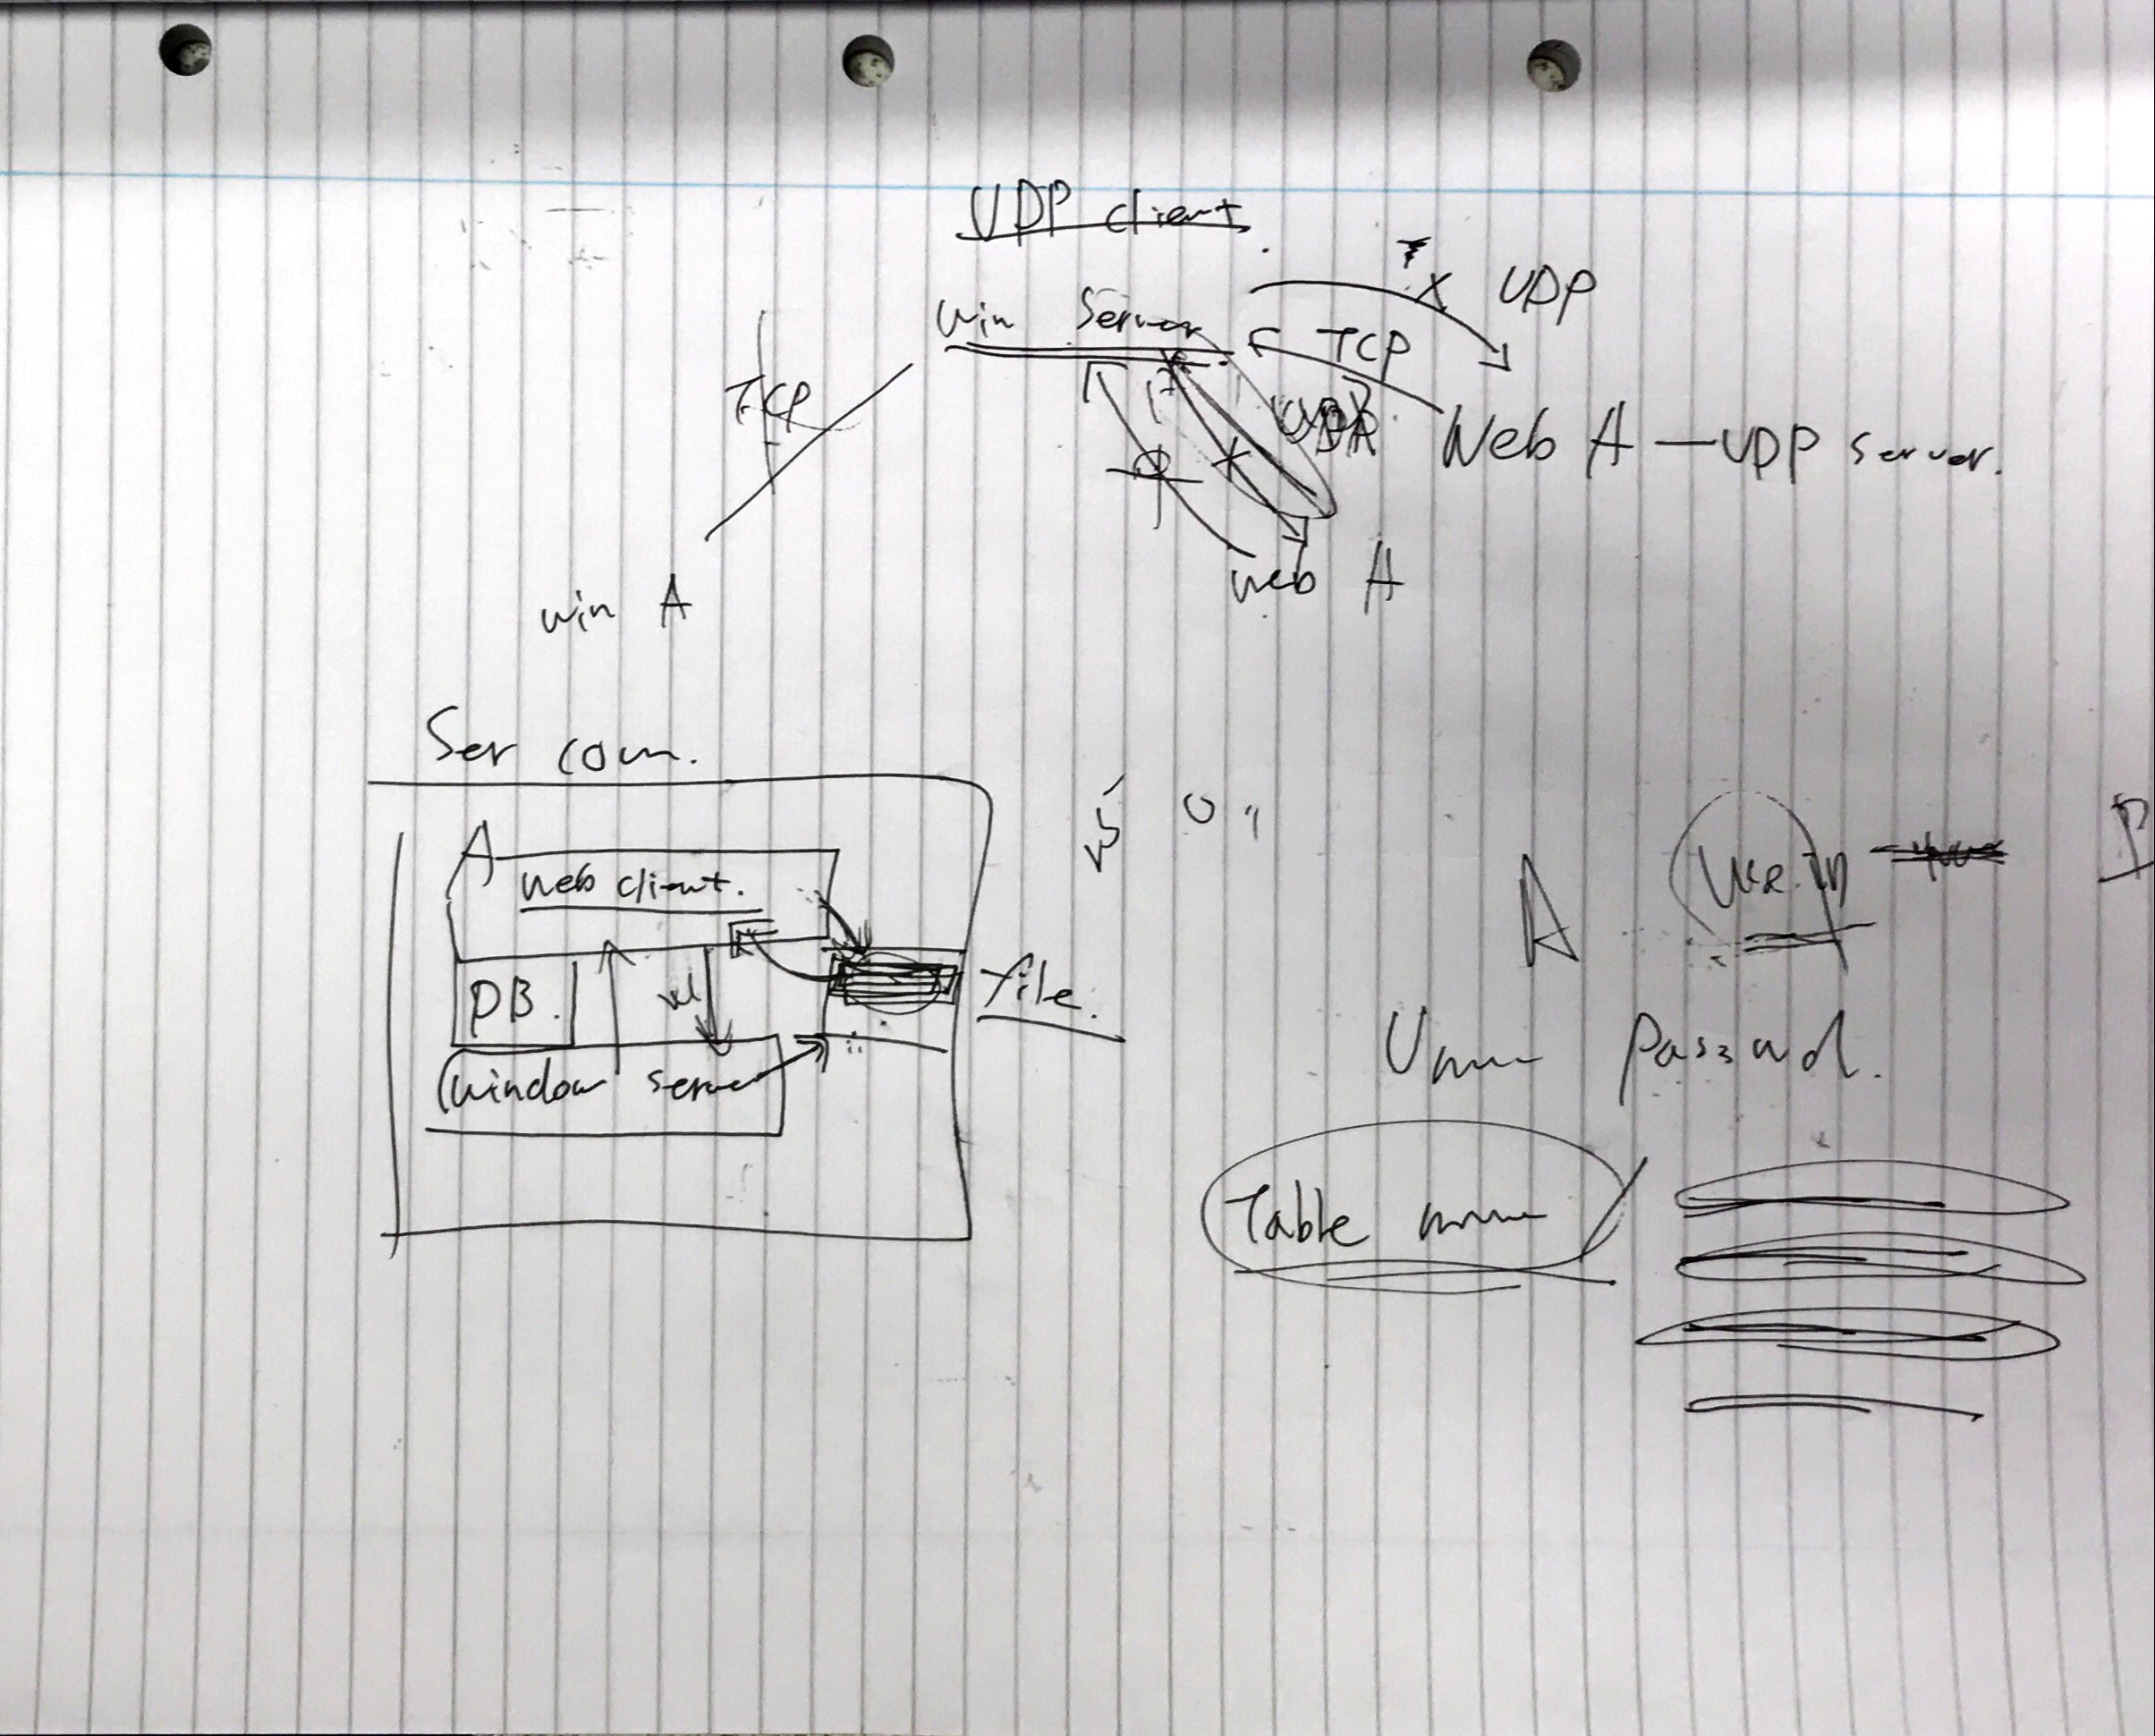 UDP client
UDP
Win Server
TCP
TCP
Web A — UDP server.
web A
win A
Ser com.
A
web client.
DB.
file.
window server
A
Password.
Table